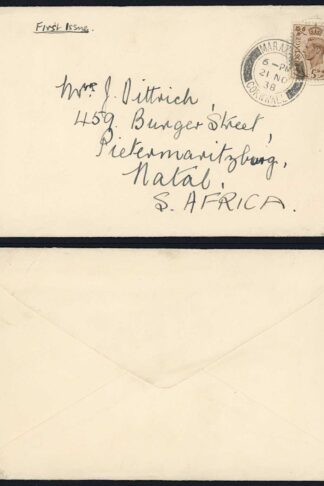 First Issue.
6-PM
21 NO
38
CORNWALL
POSTAGE
Mrs J. Dittrich,
459, Burger Street,
Pietermaritzburg,
Natal,
S. AFRICA.